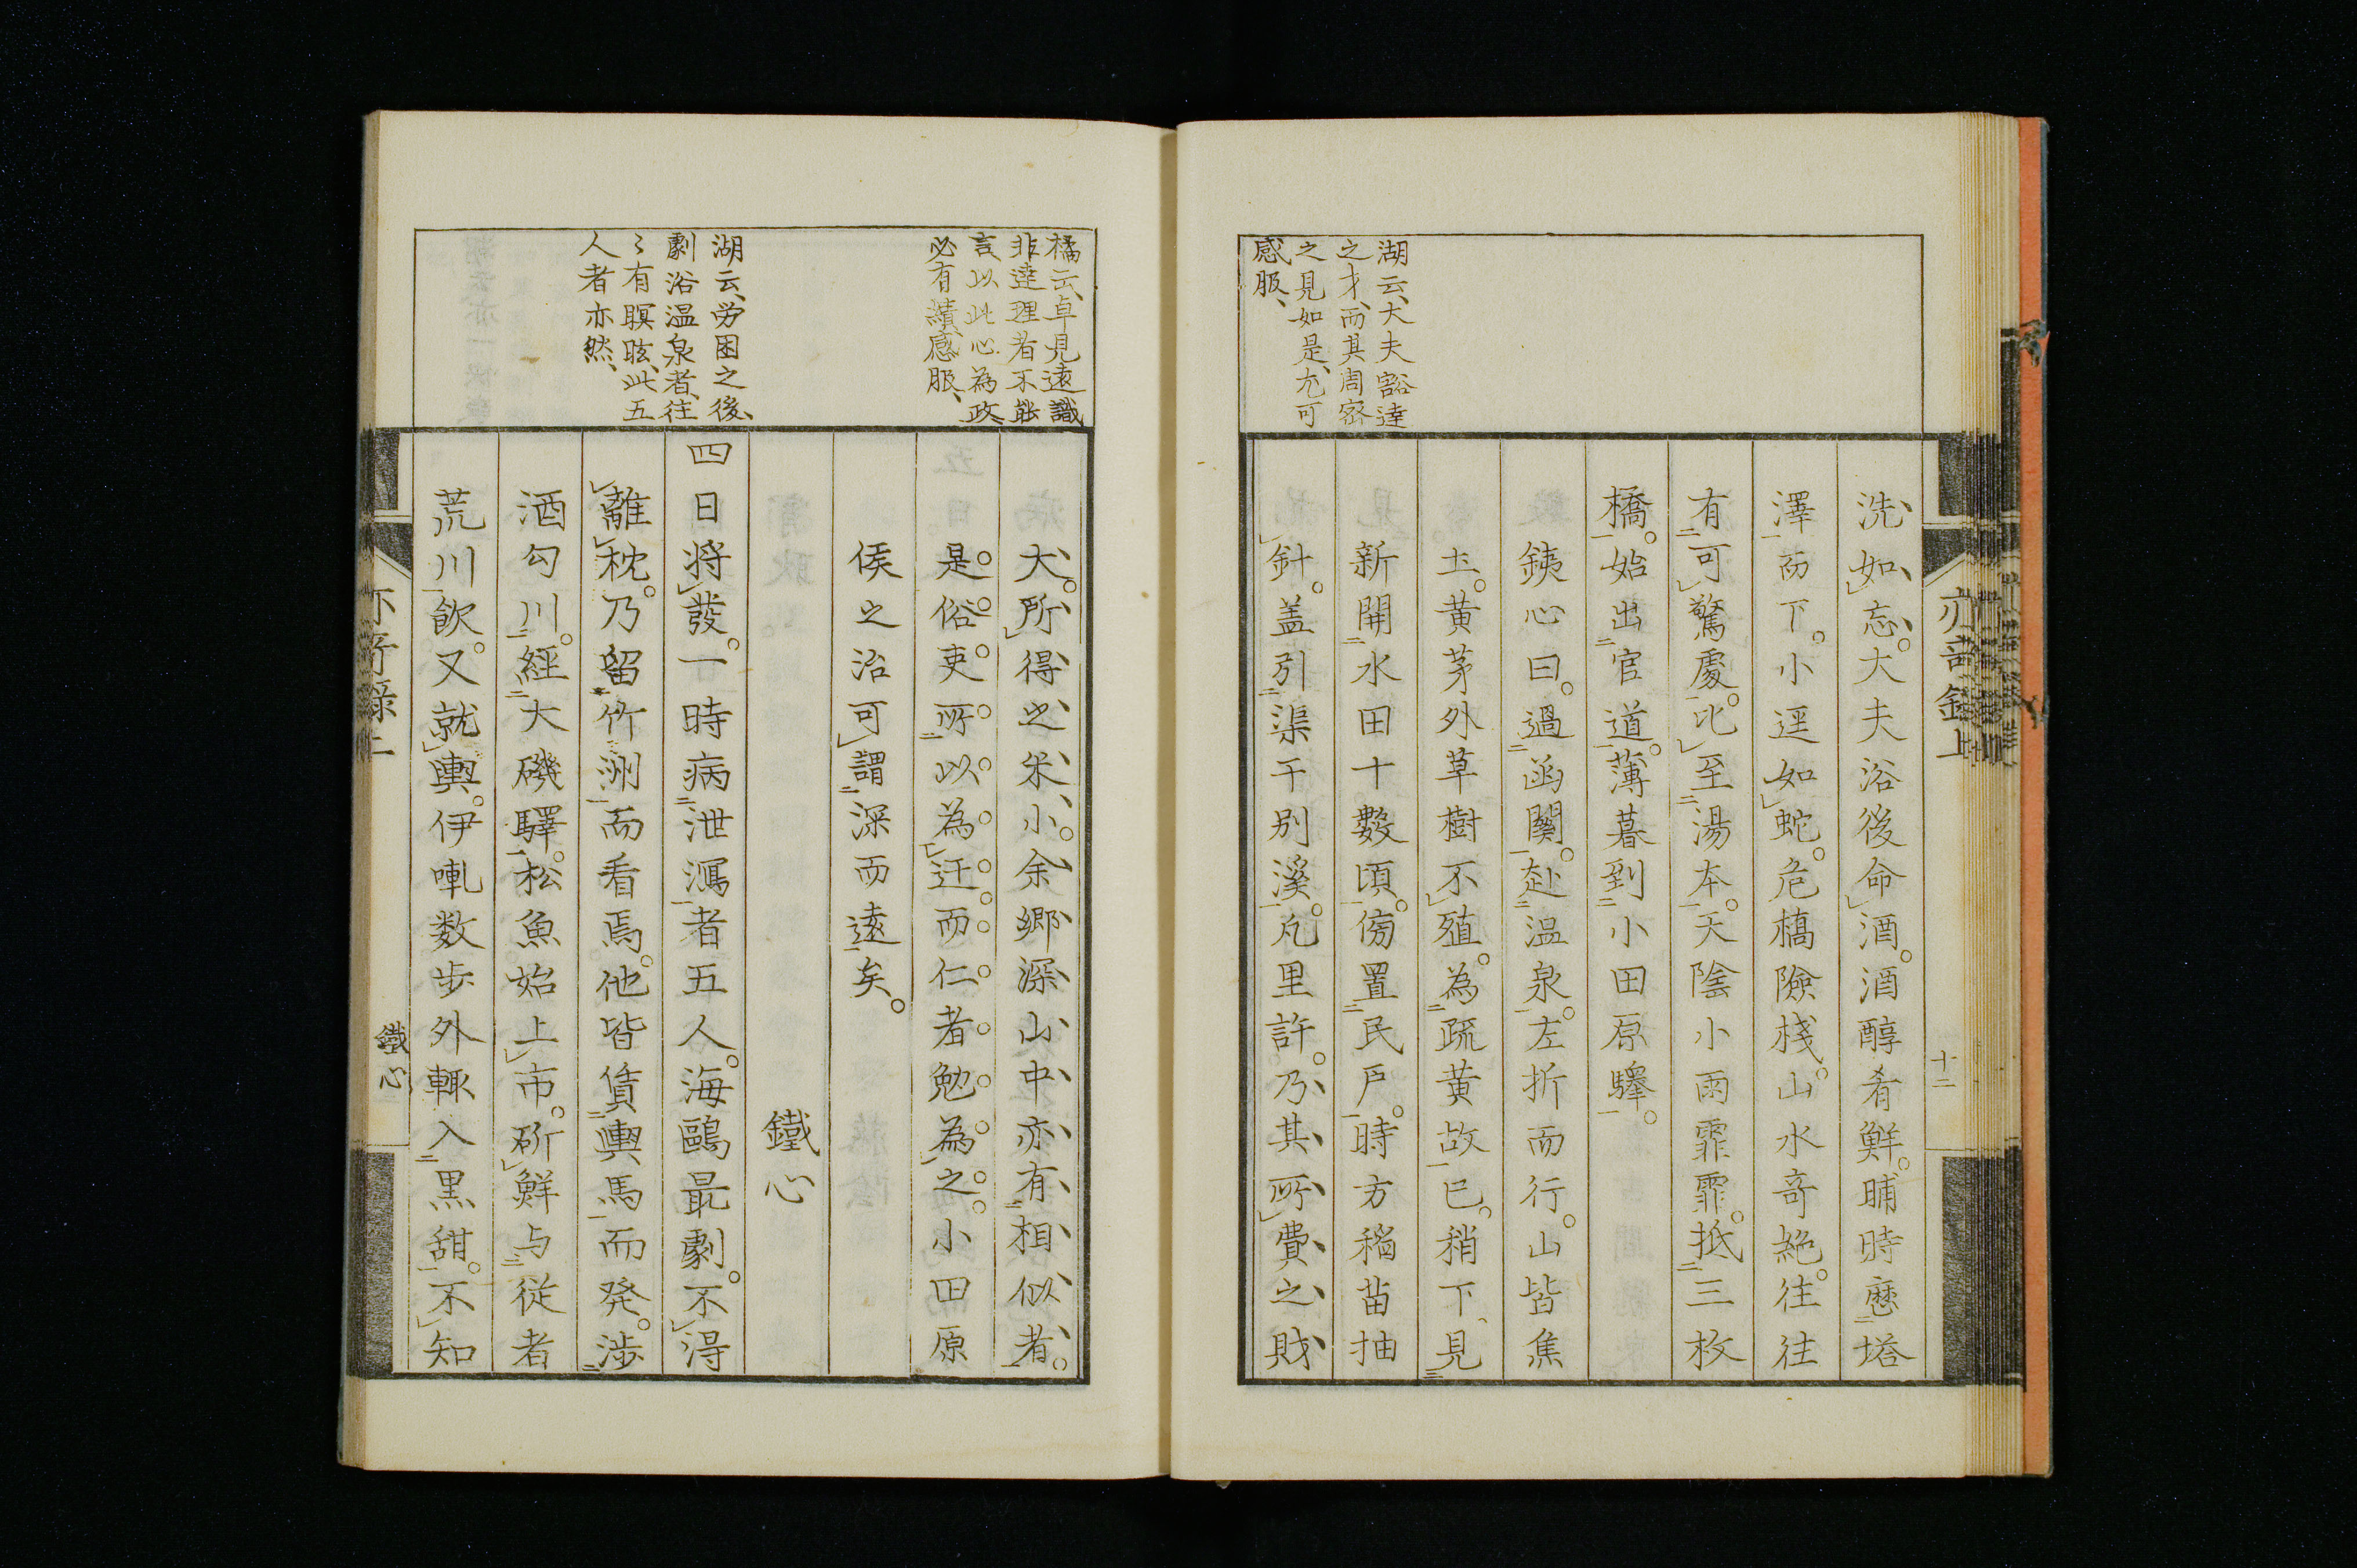 湖云、大夫豁達
之才、而其周密
之見如是、尤可
感服、
洗如忘。大夫浴後命酒。酒醇肴鮮。晡時歴塔
澤而下。小逕如蛇。危橋險棧。山水奇絶。往往
有可驚處。比至湯本。天陰小雨霏霏。抵三枚
橋。始出官道。薄暮到小田原驛。
銕心曰。過函關。赴温泉。左折而行。山皆焦
土。黄茅外草樹不殖。為疏黄故已。稍下、見
新開水田十數頃。傍置民戸。時方稲苗抽
針。盖引渠干別溪。凡里許。乃其所費之財
十二
橘云、卓見遠識
非達理者不能
言、以此心為政
必有績、感服、
湖云、労困之後、
劇浴温泉者、往
〻有瞑眩、此五
人者亦然、
大。所得之米小。余郷深山中亦有相似者。
是。俗吏所以為迂。而仁者勉為之。小田原
侯之治可謂深而遠矣。
鐵心
四日将發。一時病泄瀉者五人。海鷗最劇。不得
離枕。乃留竹洲而看焉。他皆賃輿馬而発。渉
酒勾川。經大磯驛。松魚始上市。斫鮮与従者
荒川飲。又就輿。伊軋数歩外輙入黒甜。不知
鐵心